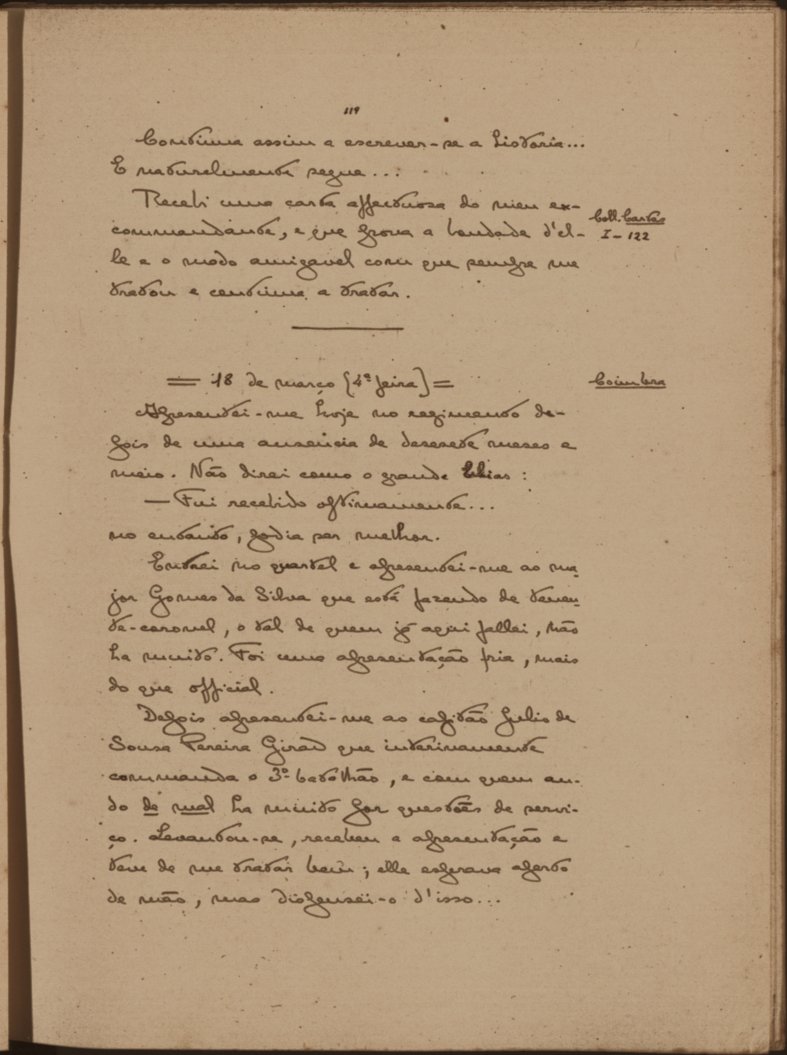 119
Continua assim a escrever-se a historia...
E naturalmente segue...
Recebi uma carta affectuosa do meu ex-
commandante, e que prova a bondade d'el-
le e o modo amigavel com que sempre me
tratou e continua a tratar.
Coll. Cartas
I - 122
= 18 de março (4ª feira) =
Coimbra
Apresentei-me hoje no regimento de-
pois de uma ausencia de desesete meses e
meio. Não direi como o grande Elias:
— Fui recebido optimamente...
no entanto, podia ser melhor.
Entrei no quartel e apresentei-me ao ma-
jor Gomes da Silva que está fazendo de tenen-
te-coronel, o tal de quem já aqui fallei, não
ha muito. Foi uma apresentação fria, mais
do que official.
Depois apresentei-me ao capitão Julio de
Sousa Pereira Girao que interinamente
commanda o 3º batalhão, e com quem an-
do de mal ha muito por questões de servi-
ço. Levantou-se, recebeu a apresentação e
teve de me tratar bem; elle esperava aperto
de mão, mas dispensei-o d'isso...